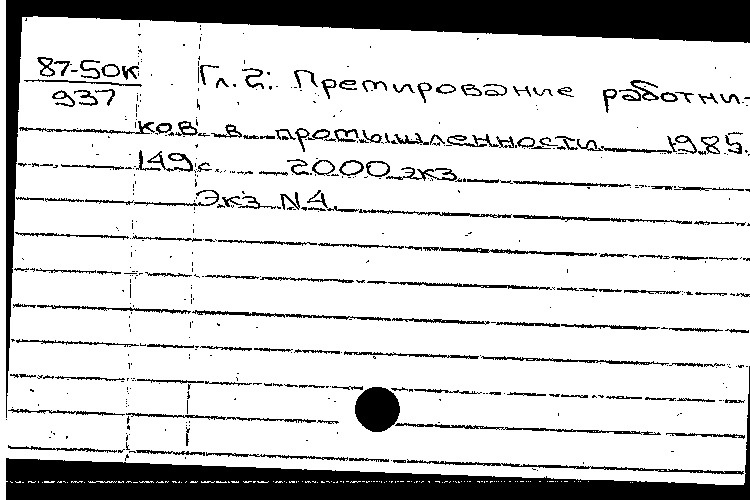 87-50к
937
Гл. 2: Премирование работни-
ков в промышленности. 1985.
149с. 2000 экз.
Экз N4.